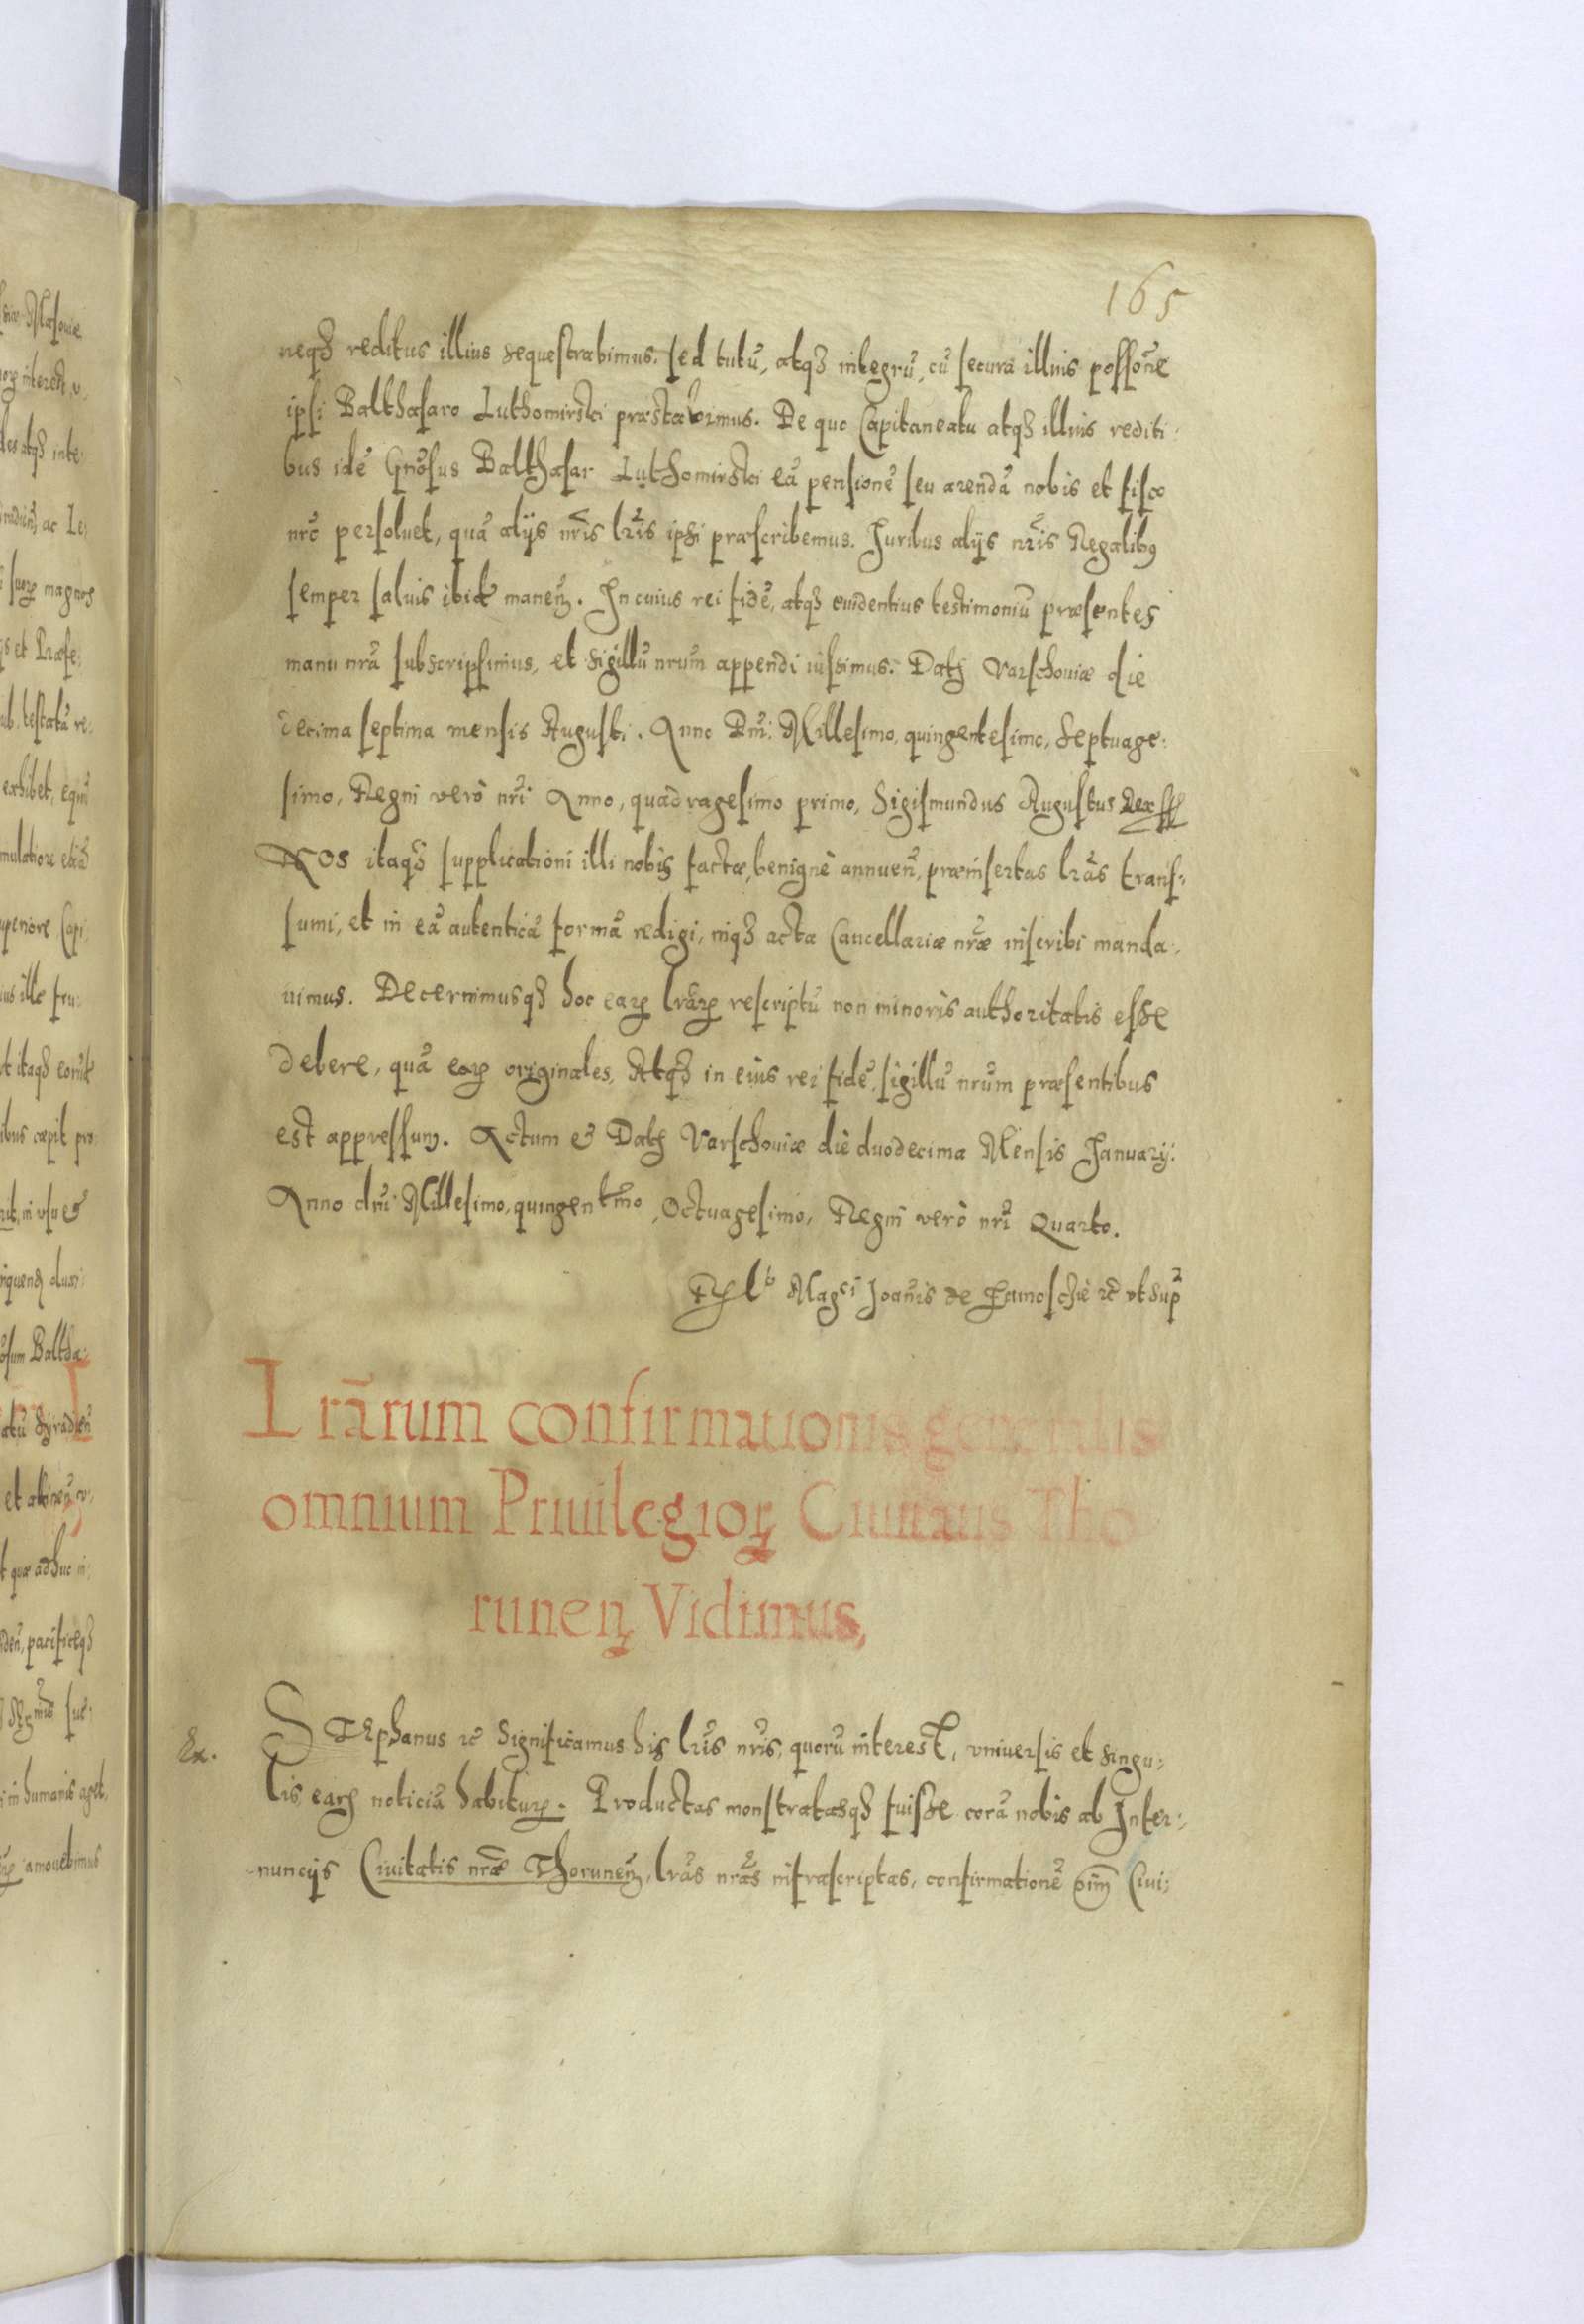 165
neqꝫ reditus illius sequestrabimus. sed tutũ, atqꝫ integrũ, cũ secura illius possõne
ipsi Balthasaro Luthomirski præstabimus. De quo Capitaneatu atqꝫ illius rediti:
bus idẽ Gnõsus Balthasar Luthomirski eã pensionẽ seu arendã nobis et fisco
nrõ persoluet, quã alijs nrĩs lrĩs ipsi præscribemus. Juribus alijs nrĩs Regalibꝰ
semper saluis ibidẽ maneñ. In cuius rei fidẽ, atqꝫ euidentius testimoniũ præsentes
manu nrã subscripsimus, et sigillũ nrũm appendi iussimus. Datꝫ Varschouiæ die
decima septima mensis Augusti. Anno Dnĩ. Millesimo, quingentesimo, Septuage:
simo, Regni verò nrĩ Anno, quadragesimo primo, Sigismundus Augustus Rex ss
Nos itaqꝫ supplicationi illi nobis factæ, benignè annueñ, præinsertas lrãs trans:
sumi, et in eã autenticã formã redigi, inqꝫ acta Cancellariæ nrẽæ inscribi manda:
uimus. Decernimusqꝫ hoc earꝝ lrãrꝝ rescriptũ non minoris authoritatis esse
debere, quã earꝝ originales, Atqꝫ in eius rei fidẽ, sigillũ nrũm præsentibus
est appressum. Actum & Datꝫ Varschouiæ die duodecima Mensis Januarij.
Anno dnĩ Millesimo, quingentmo, Octuagesimo, Regni verò nrĩ Quarto.
Magci Joañis de Zamoschie ꝛc̃ vt sup
Lrãrum confirmationis generalis
omnium Priuilegioꝝ Ciuitatis Tho
runeñ Vidimus,
Ex.
STEphanus ꝛc̃ Significamus his lrĩs nrĩs, quorũ interest, vniuersis et singu:
lis earꝫ noticiã habiturꝝ. Productas monstratasqꝫ fuisse corã nobis ab Inter:
nuncijs Ciuitatis nrãe Thoruneñ, lrãs nrãs infrascriptas, confirmationẽ oĩm Ciui: